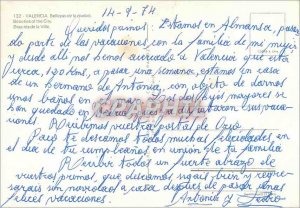 14-9-74
122 - VALENCIA. Bellezas de la ciudad.
Queridos primos: Estamos en Almansa, pasando
parte de las vacaciones con la familia de mi mujer
y desde allí nos hemos acercado a Valencia que está
cerca, 120 Kms, a pasar una semana, estamos en casa
de un hermano de Antonia, con objeto de darnos
unos baños en hijos mayores se
han quedado en sus vacaciones.
Recibimos vuestra postal de
Paco te deseamos todos muchas felicidades en
el día de tu cumpleaños en unión de tu familia
Recibir todos un fuerte abrazo de
vuestros primos, que deseamos sigáis bien y regresaráis
sin novedad a casa después de pasar unas
felices vacaciones. Antonia y Pedro